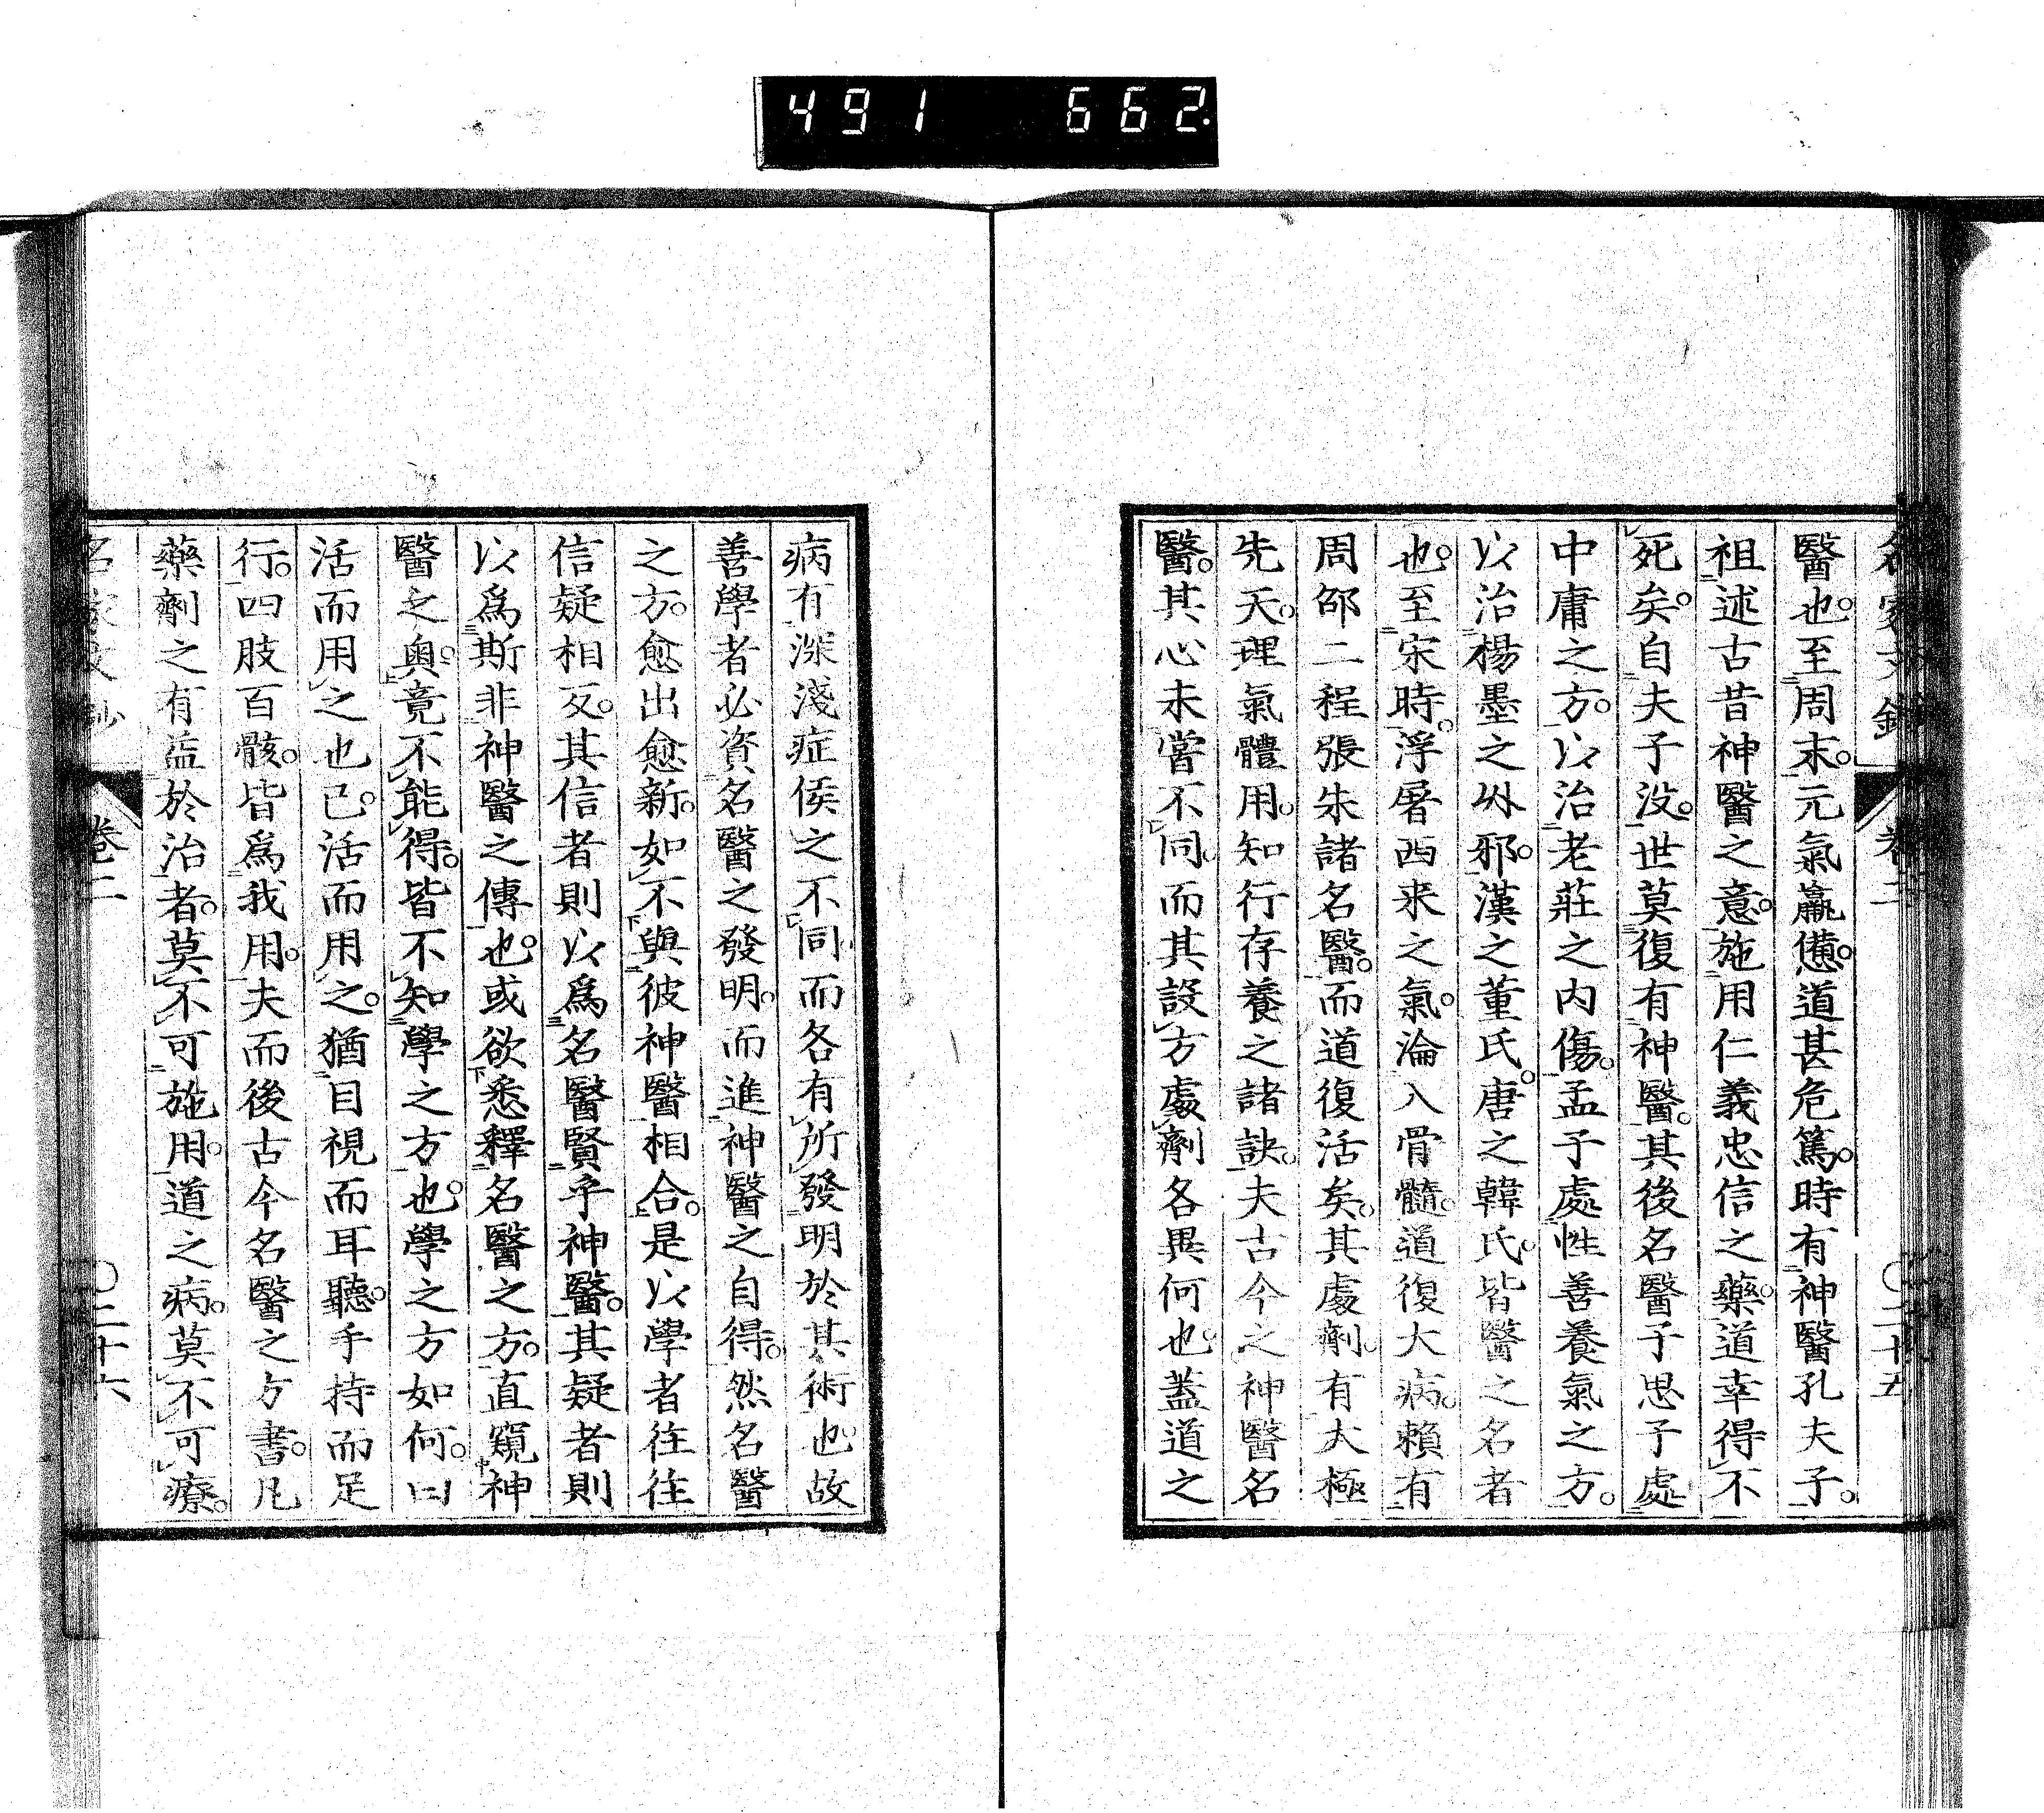 491 662
醫也。至周末。元氣羸憊。道甚危篤。時有神醫孔夫子。
祖述古昔神醫之意。施用仁義忠信之藥。道幸得不
死矣。自夫子沒。世莫復有神醫。其後名醫子思子處
中庸之方。以治老莊之內傷。孟子處性善養氣之方。
以治楊墨之外邪。漢之董氏。唐之韓氏。皆醫之名者
也。至宋時。浮屠西来之氣。淪入骨髓。道復大病。賴有
周邵二程張朱諸名醫。而道復活矣。其處劑。有太極
先天。理氣體用。知行存養之諸訣。夫古今之神醫名
醫。其心未嘗不同。而其設方處劑各異何也。蓋道之
病有深淺症侯之不同而各有所發明於其術也故
善學者必資名醫之發明。而進神醫之自得。然名醫
之方。愈出愈新。如不與彼神醫相合。是以學者往往
信疑相反。其信者則以爲名醫賢乎神醫。其疑者則
以爲斯非神醫之傳也。或欲悉釋名醫之方。直窺神
醫之奧。竟不能得。皆不知學之方也。學之方如何。曰
活而用之也已。活而用之。猶目視而耳聽。手持而足
行。四肢百骸。皆爲我用。夫而後古今名醫之方書。凡
藥劑之有益於治者。莫不可施用。道之病。莫不可療。
卷二
〇二十六